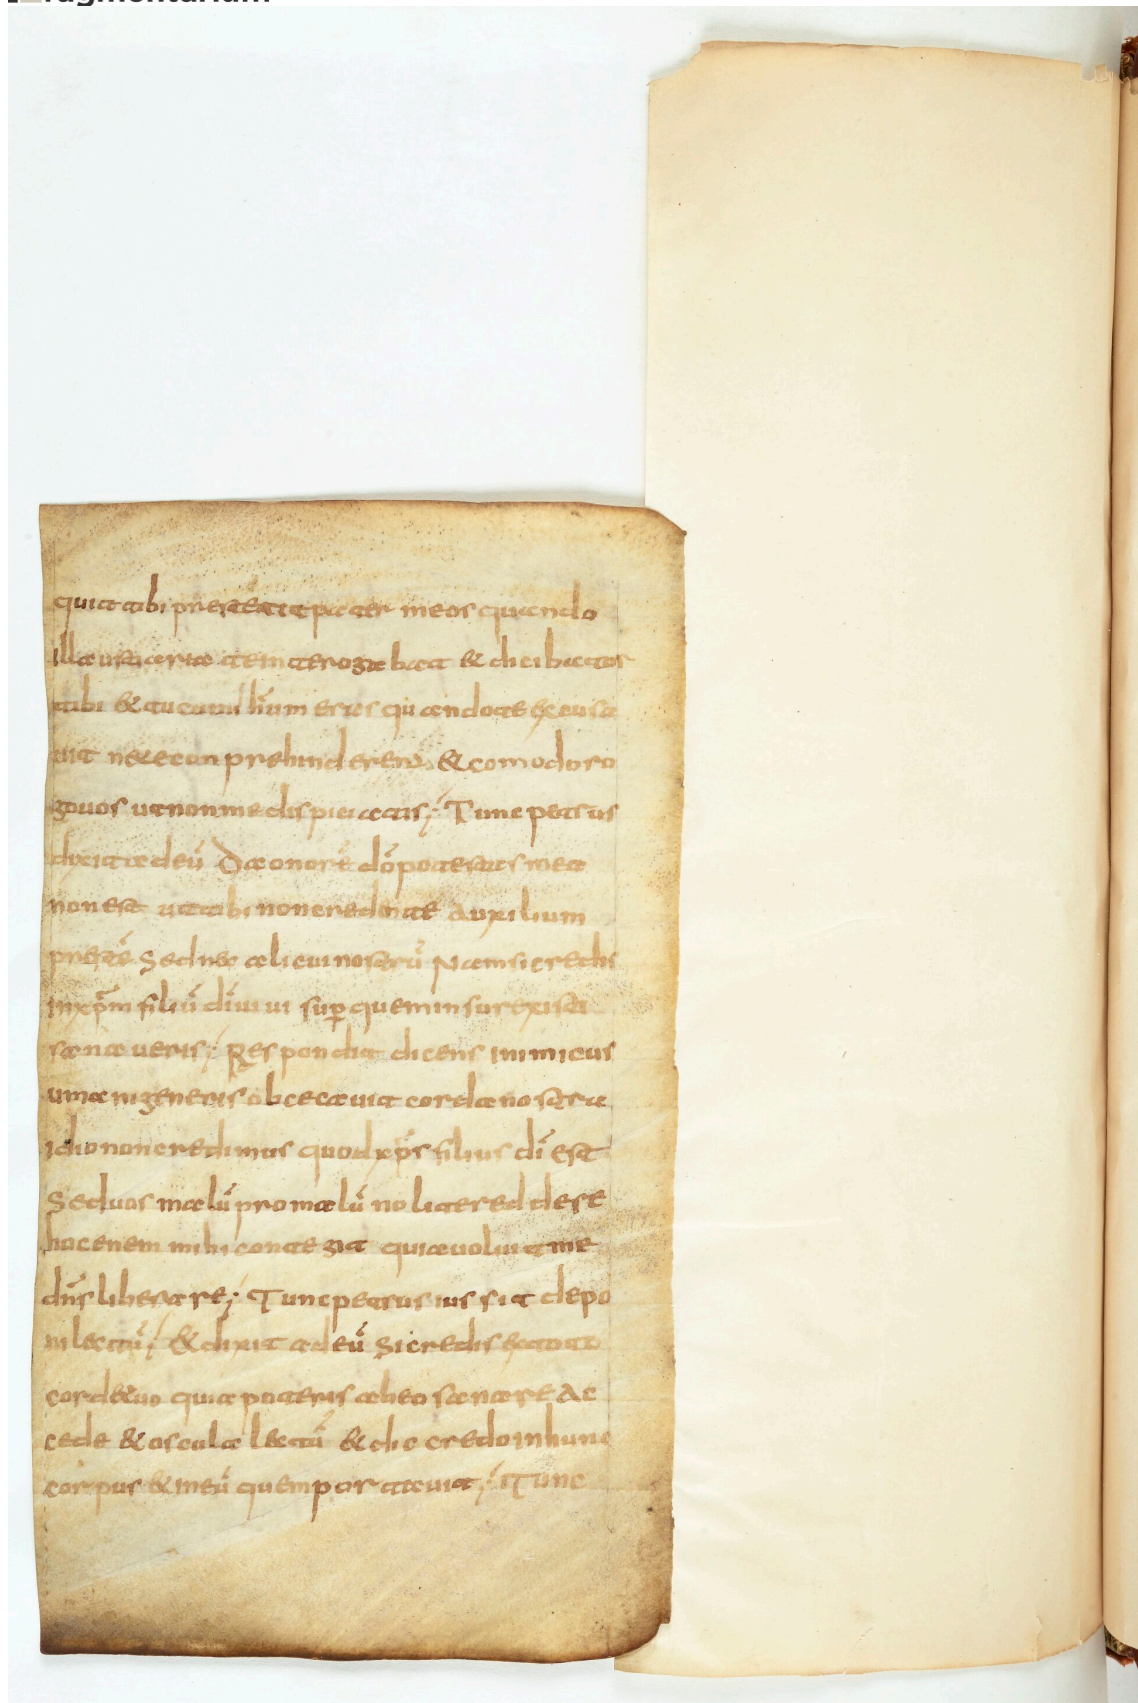 quia tibi prestetit pater meos quando
illa ustiaria te interogabat & dicibator
tibi & tu cum illium eras quando te excusa
uit nete conprehinderent & comodo ro
go uos ut non me dispiciatis; Tunc petrus
dixit ad eū Da onorē dō potestas mea
non est ut tibi non credente auxilium
prestē Sed nec alicui nostrū Nam si credis
in xp̄m filiū dī uiui sup quem insurexisti
sana ueris; Respondit dicens inimicus
umani generis obcecauit corda nostra
idio non credimus quod xp̄s filius dī est
Sed uos malū pro malū nolite reddere
hoc enem mihi contegit quia uoluit me
dn̄s liberare; Tunc petrus iussit depo
ni lectū; & dixit ad eū Si credis ex toto
corde tuo quia poteris ab eo sanare Ac
cede & oscula lectū & dic credo in hunc
corpus & in eū quem portauit; Tunc